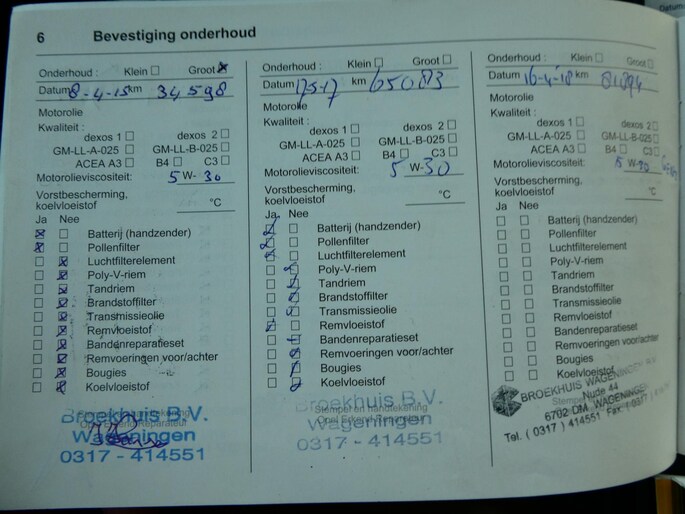 6 Bevestiging onderhoud
Onderhoud : Klein Groot
Datum 8-4-15 km 34598
Motorolie
Kwaliteit :
dexos 1 dexos 2
GM-LL-A-025 GM-LL-B-025
ACEA A3 B4 C3
Motorolieviscositeit: 5 W- 30
Vorstbescherming,
koelvloeistof °C
Ja Nee
Batterij (handzender)
Pollenfilter
Luchtfilterelement
Poly-V-riem
Tandriem
Brandstoffilter
Transmissieolie
Remvloeistof
Bandenreparatieset
Remvoeringen voor/achter
Bougies
Koelvloeistof
Broekhuis B.V.
Wageningen
0317 - 414551
Onderhoud : Klein Groot
Datum km 65083
Motorolie
Kwaliteit :
dexos 1 dexos 2
GM-LL-A-025 GM-LL-B-025
ACEA A3 B4 C3
Motorolieviscositeit: 5 W-30
Vorstbescherming,
koelvloeistof °C
Ja Nee
Batterij (handzender)
Pollenfilter
Luchtfilterelement
Poly-V-riem
Tandriem
Brandstoffilter
Transmissieolie
Remvloeistof
Bandenreparatieset
Remvoeringen voor/achter
Bougies
Koelvloeistof
Stempel en handtekening
Opel Erkend Reparateur
Broekhuis B.V.
Wageningen
0317 - 414551
Onderhoud : Klein Groot
Datum 16-4-18 km 81894
Motorolie
Kwaliteit :
dexos 1 dexos 2
GM-LL-A-025 GM-LL-B-025
ACEA A3 B4 C3
Motorolieviscositeit: 5 W-30
Vorstbescherming,
koelvloeistof °C
Ja Nee
Batterij (handzender)
Pollenfilter
Luchtfilterelement
Poly-V-riem
Tandriem
Brandstoffilter
Transmissieolie
Remvloeistof
Bandenreparatieset
Remvoeringen voor/achter
Bougies
Koelvloeistof
BROEKHUIS WAGENINGEN
Nude 44
6702 DM WAGENINGEN
Tel. ( 0317 ) 414551